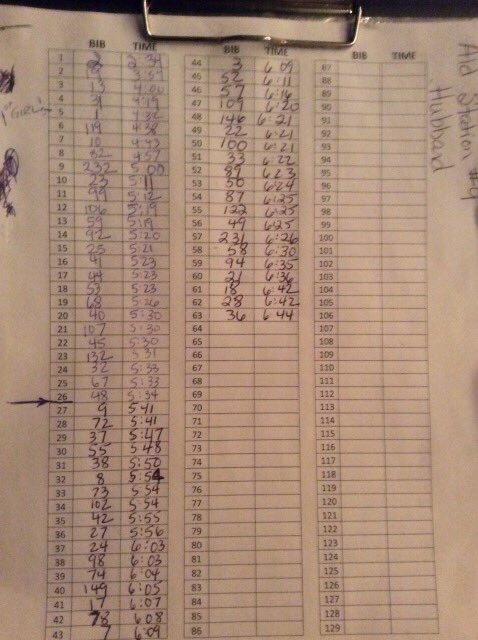 Aid Station #4
Hubbard
BIB TIME
1 2
2
3 13 4:00
4 31 4:19
1st GIRL
5 1 4:32
6 119 4:38
7 10 4:43
8 82 4:57
9 232 5:00
10 23 5:11
11 99 5:12
12 106 5:19
13 59 5:19
14 92 5:20
15 25 5:21
16 41 523
17 44 5:23
18 53 5:23
19 68 5:26
20 40 5:30
21 107 5:30
22 45 5:30
23 132 5 31
24 32 5:33
25 67 5:33
26 48 5:34
27 9 541
28 72 5:41
29 37 5:47
30 55 548
31 38 5:50
32 8 5:54
33 73 554
34 102 554
35 42 5:55
36 27 5:56
37 24 6:03
38 98 6:03
39 74 6:04
40 149 6:05
41 17 6:07
42 78 608
43 7 6:09
BIB TIME
44 3 6 09
45 52 6:11
46 57 6:16
47 109 6:20
48 146 6:21
49 22 6:21
50 100 6:21
51 33 6:22
52 89 623
53 50 624
54 87 6:25
55 122 6:25
56 49 6:25
57 231 6:26
58 58 6:30
59 94 6:35
60 21 6:36
61 18 6:42
62 28 6:42
63 36 6 44
64
65
66
67
68
69
70
71
72
73
74
75
76
77
78
79
80
81
82
83
84
85
86
BIB TIME
87
88
89
90
91
92
93
94
95
96
97
98
99
100
101
102
103
104
105
106
107
108
109
110
111
112
113
114
115
116
117
118
119
120
121
122
123
124
125
126
127
128
129